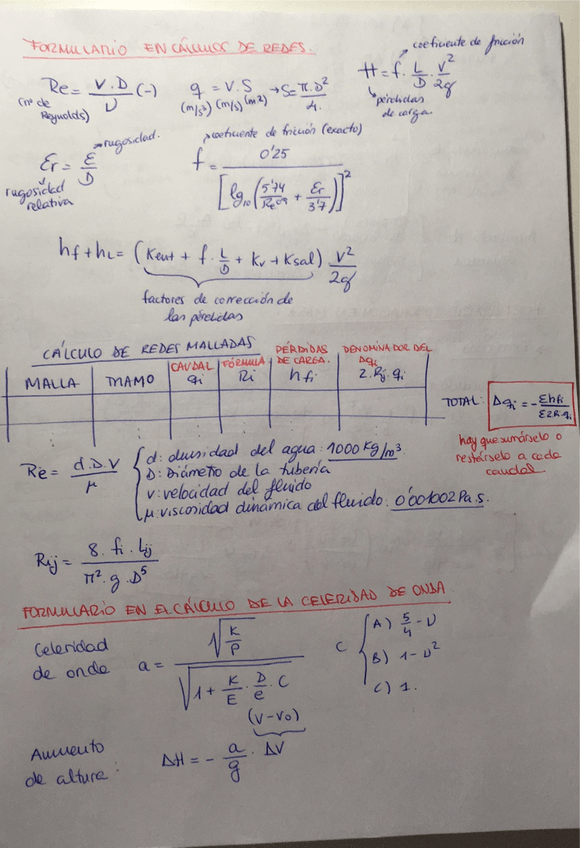 FORMULARIO EN CÁLCULOS DE REDES.
coeficiente de fricción
Re = V.D / ν (-)
q = V.S → S = π.D² / 4.
H = f. L/D . v²/2g
(nº de Reynolds)
(m/s³) (m/s) (m²)
pérdidas de carga.
Er = ε/D
rugosidad.
rugosidad relativa
coeficiente de fricción (exacto)
f = 0'25 / [lg₁₀ (5'74/Re^0'9 + Er/3'7)]²
hf + hL = (Kent + f. L/D + Kv + Ksal) v²/2g
factores de corrección de
las pérdidas
CÁLCULO DE REDES MALLADAS
MALLA
TRAMO
CAUDAL qi
FÓRMULA Ri
PÉRDIDAS DE CARGA. hfi
DENOMINADOR DEL Δqi 2.Rj.qi
TOTAL: Δqi = - Σhfi / Σ2R.qi
hay que sumárselo o
restárselo a cada
caudal
Re = d.D.V / μ
d: densidad del agua: 1000 Kg/m³.
D: Diámetro de la tubería
v: velocidad del fluido
μ: viscosidad dinámica del fluido: 0'001002 Pa.s.
Rij = 8. fi. Lij / π². g. D⁵
FORMULARIO EN EL CÁLCULO DE LA CELERIDAD DE ONDA
Celeridad
de onda a = √(K/ρ) / √(1 + K/E . D/e . C)
C
A) 5/4 - ν
B) 1 - ν²
C) 1.
(V-V₀)
Aumento
de altura: ΔH = - a/g . ΔV